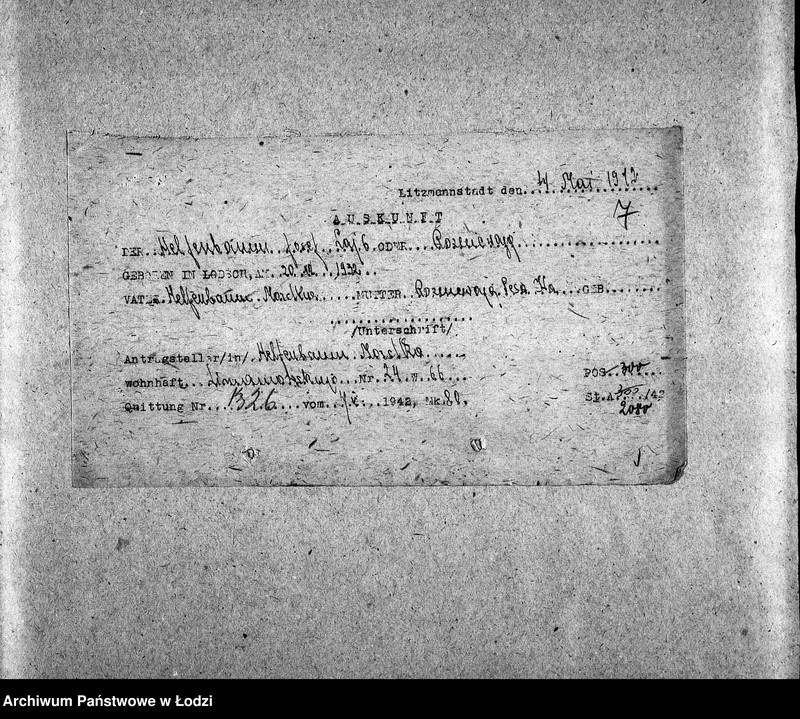 Litzmannstadt den...4 Mai 1942
7
A U S K U N F T
DER..Helfenbaum Josef Lajb ODER...Rozenewajg
GEBOREN IN LODSCH, AM. 20. 1932
VATER Helfenbaum Mordka.....MUTTER Rozenewajg Pesa ...GEB.
/Unterschrift/
Antragsteller/in/ Helfenbaum Mordka
wohnhaft.. Nr. 24 w. 66... POS. 300
Quittung Nr...1326....vom 1942, Mk. St.A 300 /42
2080
Archiwum Państwowe w Łodzi